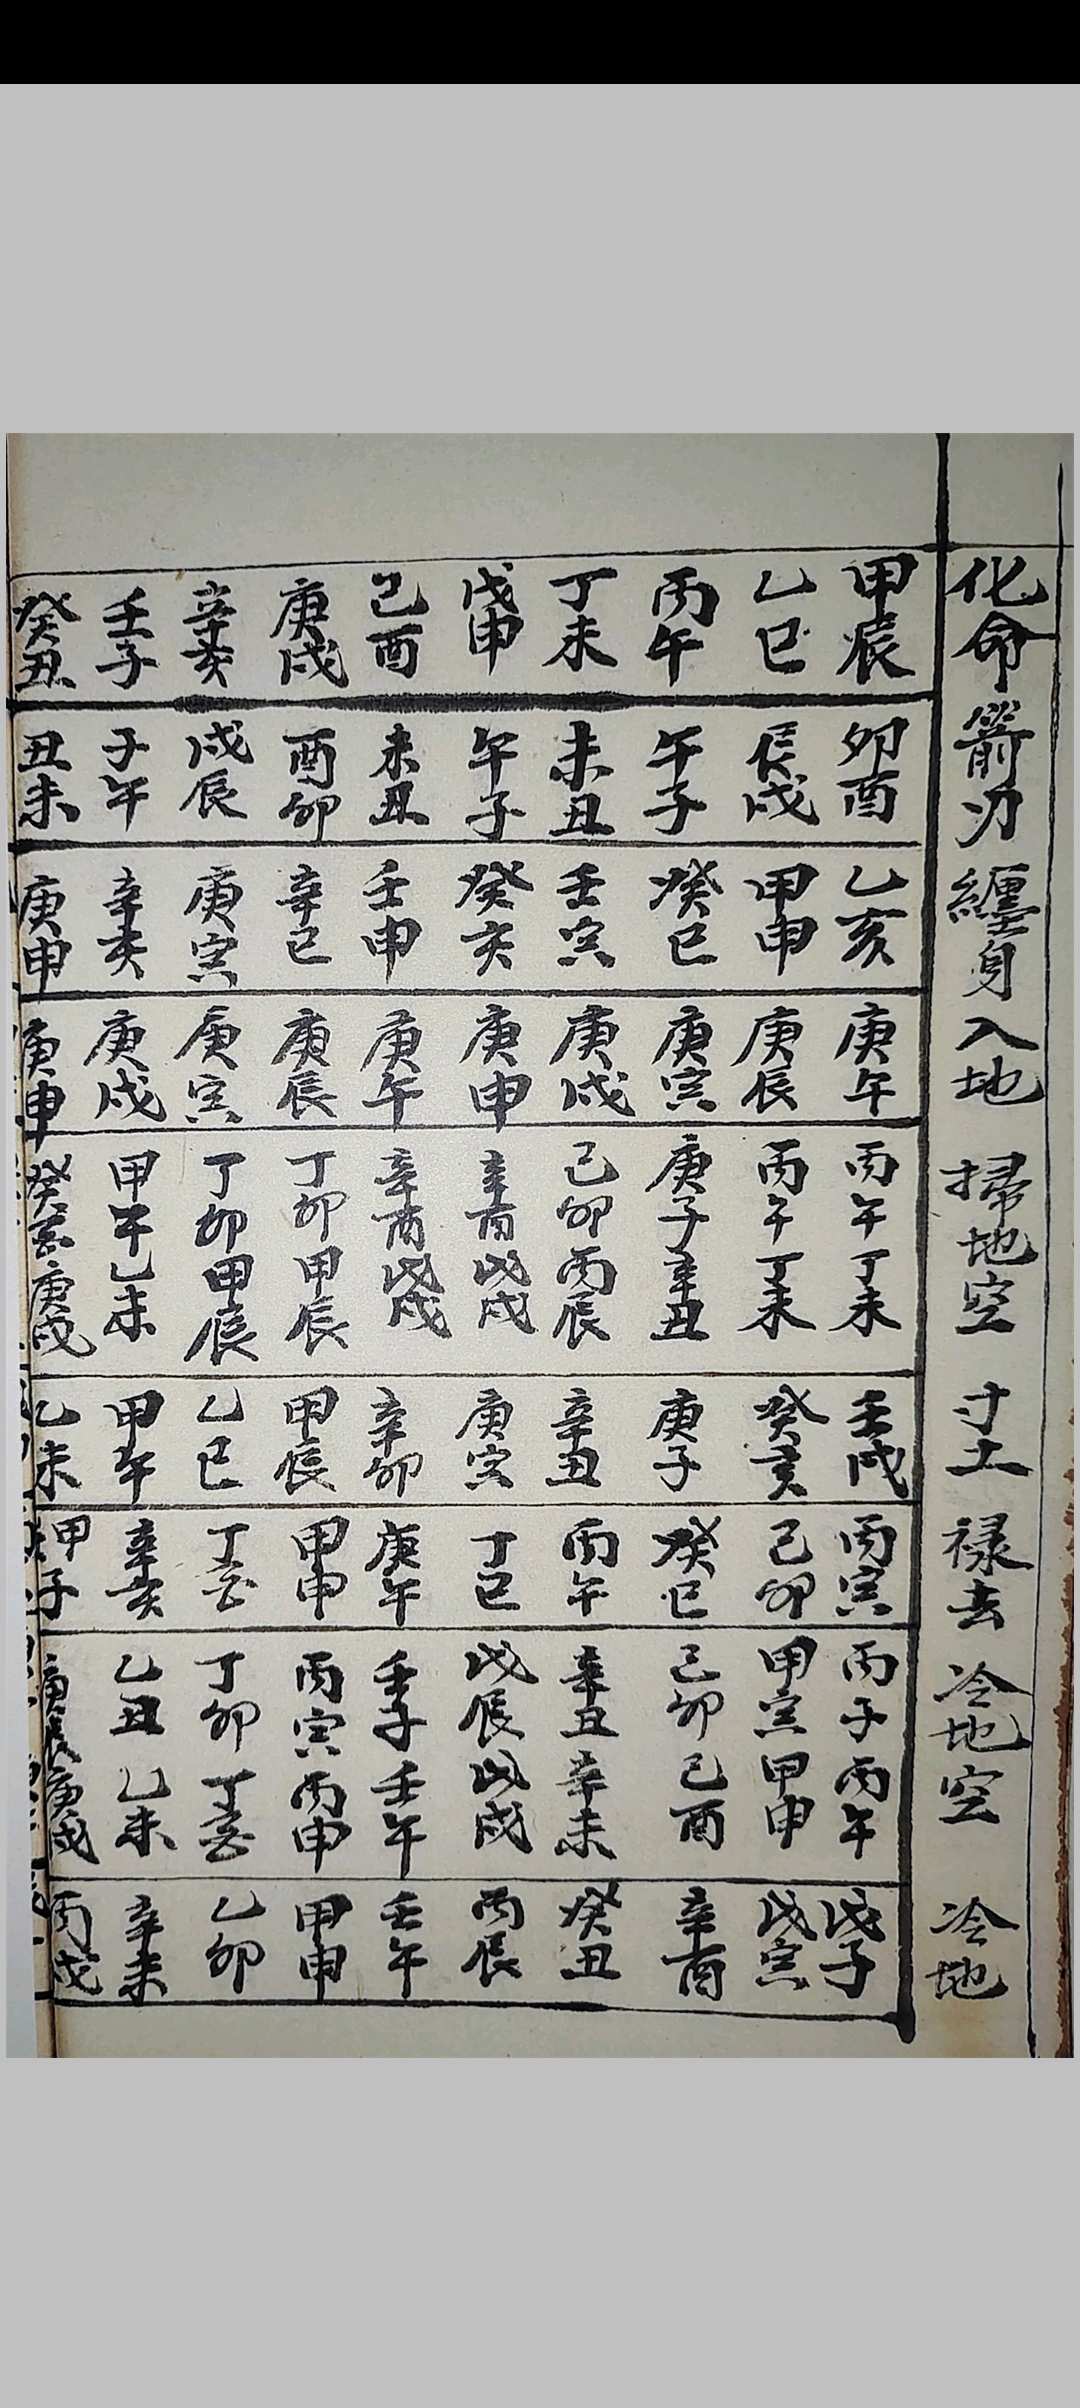 化命 箭刃 纏身 入地 掃地空 寸土 禄去 冷地空 冷地
甲辰 卯酉 乙亥 庚午 丙午丁未 壬戌 丙寅 丙子丙午 戊子
乙巳 辰戌 甲申 庚辰 丙午丁未 癸亥 己卯 甲寅甲申 戊寅
丙午 午子 癸巳 庚寅 庚子辛丑 庚子 癸巳 己卯己酉 辛酉
丁未 未丑 壬寅 庚戌 己卯丙辰 辛丑 丙午 辛丑辛未 癸丑
戊申 午子 癸亥 庚申 辛酉戊戌 庚寅 丁巳 戊辰戊戌 丙辰
己酉 未丑 壬申 庚午 辛酉戊戌 辛卯 庚午 壬子壬午 壬午
庚戌 酉卯 辛巳 庚辰 丁卯甲辰 甲辰 甲申 丙寅丙申 甲申
辛亥 戌辰 庚寅 庚寅 丁卯甲辰 乙巳 丁酉 丁卯丁酉 乙卯
壬子 子午 辛亥 庚戌 甲午乙未 甲午 辛亥 乙丑乙未 辛未
癸丑 丑未 庚申 庚申 癸酉庚戌 乙未 甲子 庚辰庚戌 丙戌